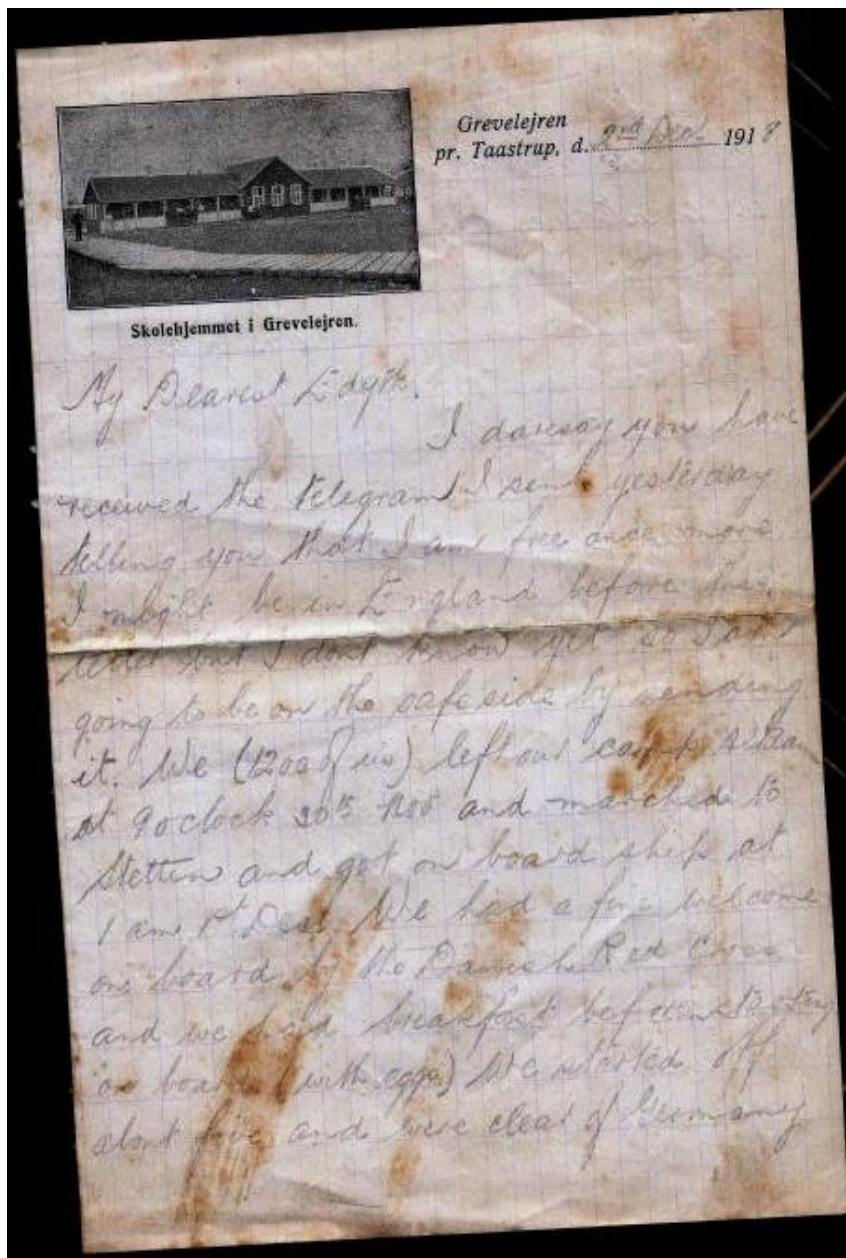 Grevelejren
pr. Taastrup, d. 2nd Dec. 1918
Skolehjemmet i Grevelejren.
My Dearest Edyth.
I daresay you have
received the telegram I sent yesterday
telling you that I am free once more
I might be in England before this
letter but I dont know yet so I am
going to be on the safe side by sending
it. We (1200 of us) left our camp
at 9 oclock 30th Nov and marched to
Stettin and got on board ship at
1 am 1st Dec. We had a fine welcome
on board by the Danish Red Cross
and we had breakfast before
on board (with eggs) We started off
about five and were clear of Germany